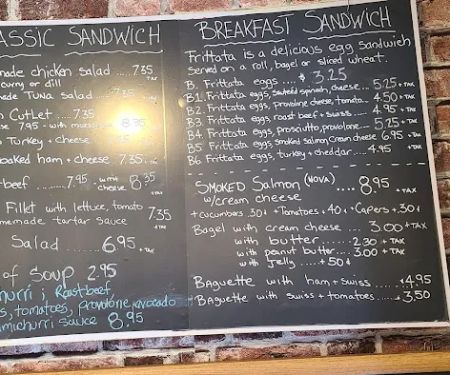 ASSIC SANDWICH
made chicken salad .... 7.35
curry or dill TAX
ade Tuna salad ... 7.35
n Cutlet .... 7.35
se 7.95 - with 8.35
Turkey + cheese
oaked ham + cheese 7.35
beef ..... 7.95 - with cheese 8.35
Fillet with lettuce, tomato 7.35
memade tartar sauce
Salad ..... 6.95 + TAX
of Soup 2.95
churri ; Roast beef,
s, tomatoes, provolone, avocado
imichurri sauce 8.95
BREAKFAST SANDWICH
Frittata is a delicious egg sandwich
Served on a roll, bagel or sliced wheat.
B. Frittata eggs .... $3.25
B1. Frittata eggs, sauteed spinach, cheese .... 5.25 + TAX
B2 Frittata eggs, provolone cheese, tomato.. 4.50 + TAX
B3 Frittata eggs roast beef + swiss... 4.95 + TAX
B4 Frittata eggs, prosciutto, provolone... 5.25 + TAX
B5 Frittata eggs, smoked salmon, cream cheese 6.95 + TAX
B6 Frittata eggs, turkey + cheddar ... 4.95 + TAX
Smoked Salmon (NOVA) .... 8.95 + TAX
w/cream cheese
+ cucumbers .30¢ + Tomatoes .40¢ + Capers + .30¢
Bagel with cream cheese ... 3.00 + TAX
with butter ....... 2.30 + TAX
with peanut butter .... 3.00 + TAX
with Jelly .... + 50¢
Baguette with ham + swiss...... 4.95
Baguette with swiss + tomatoes.... 3.50